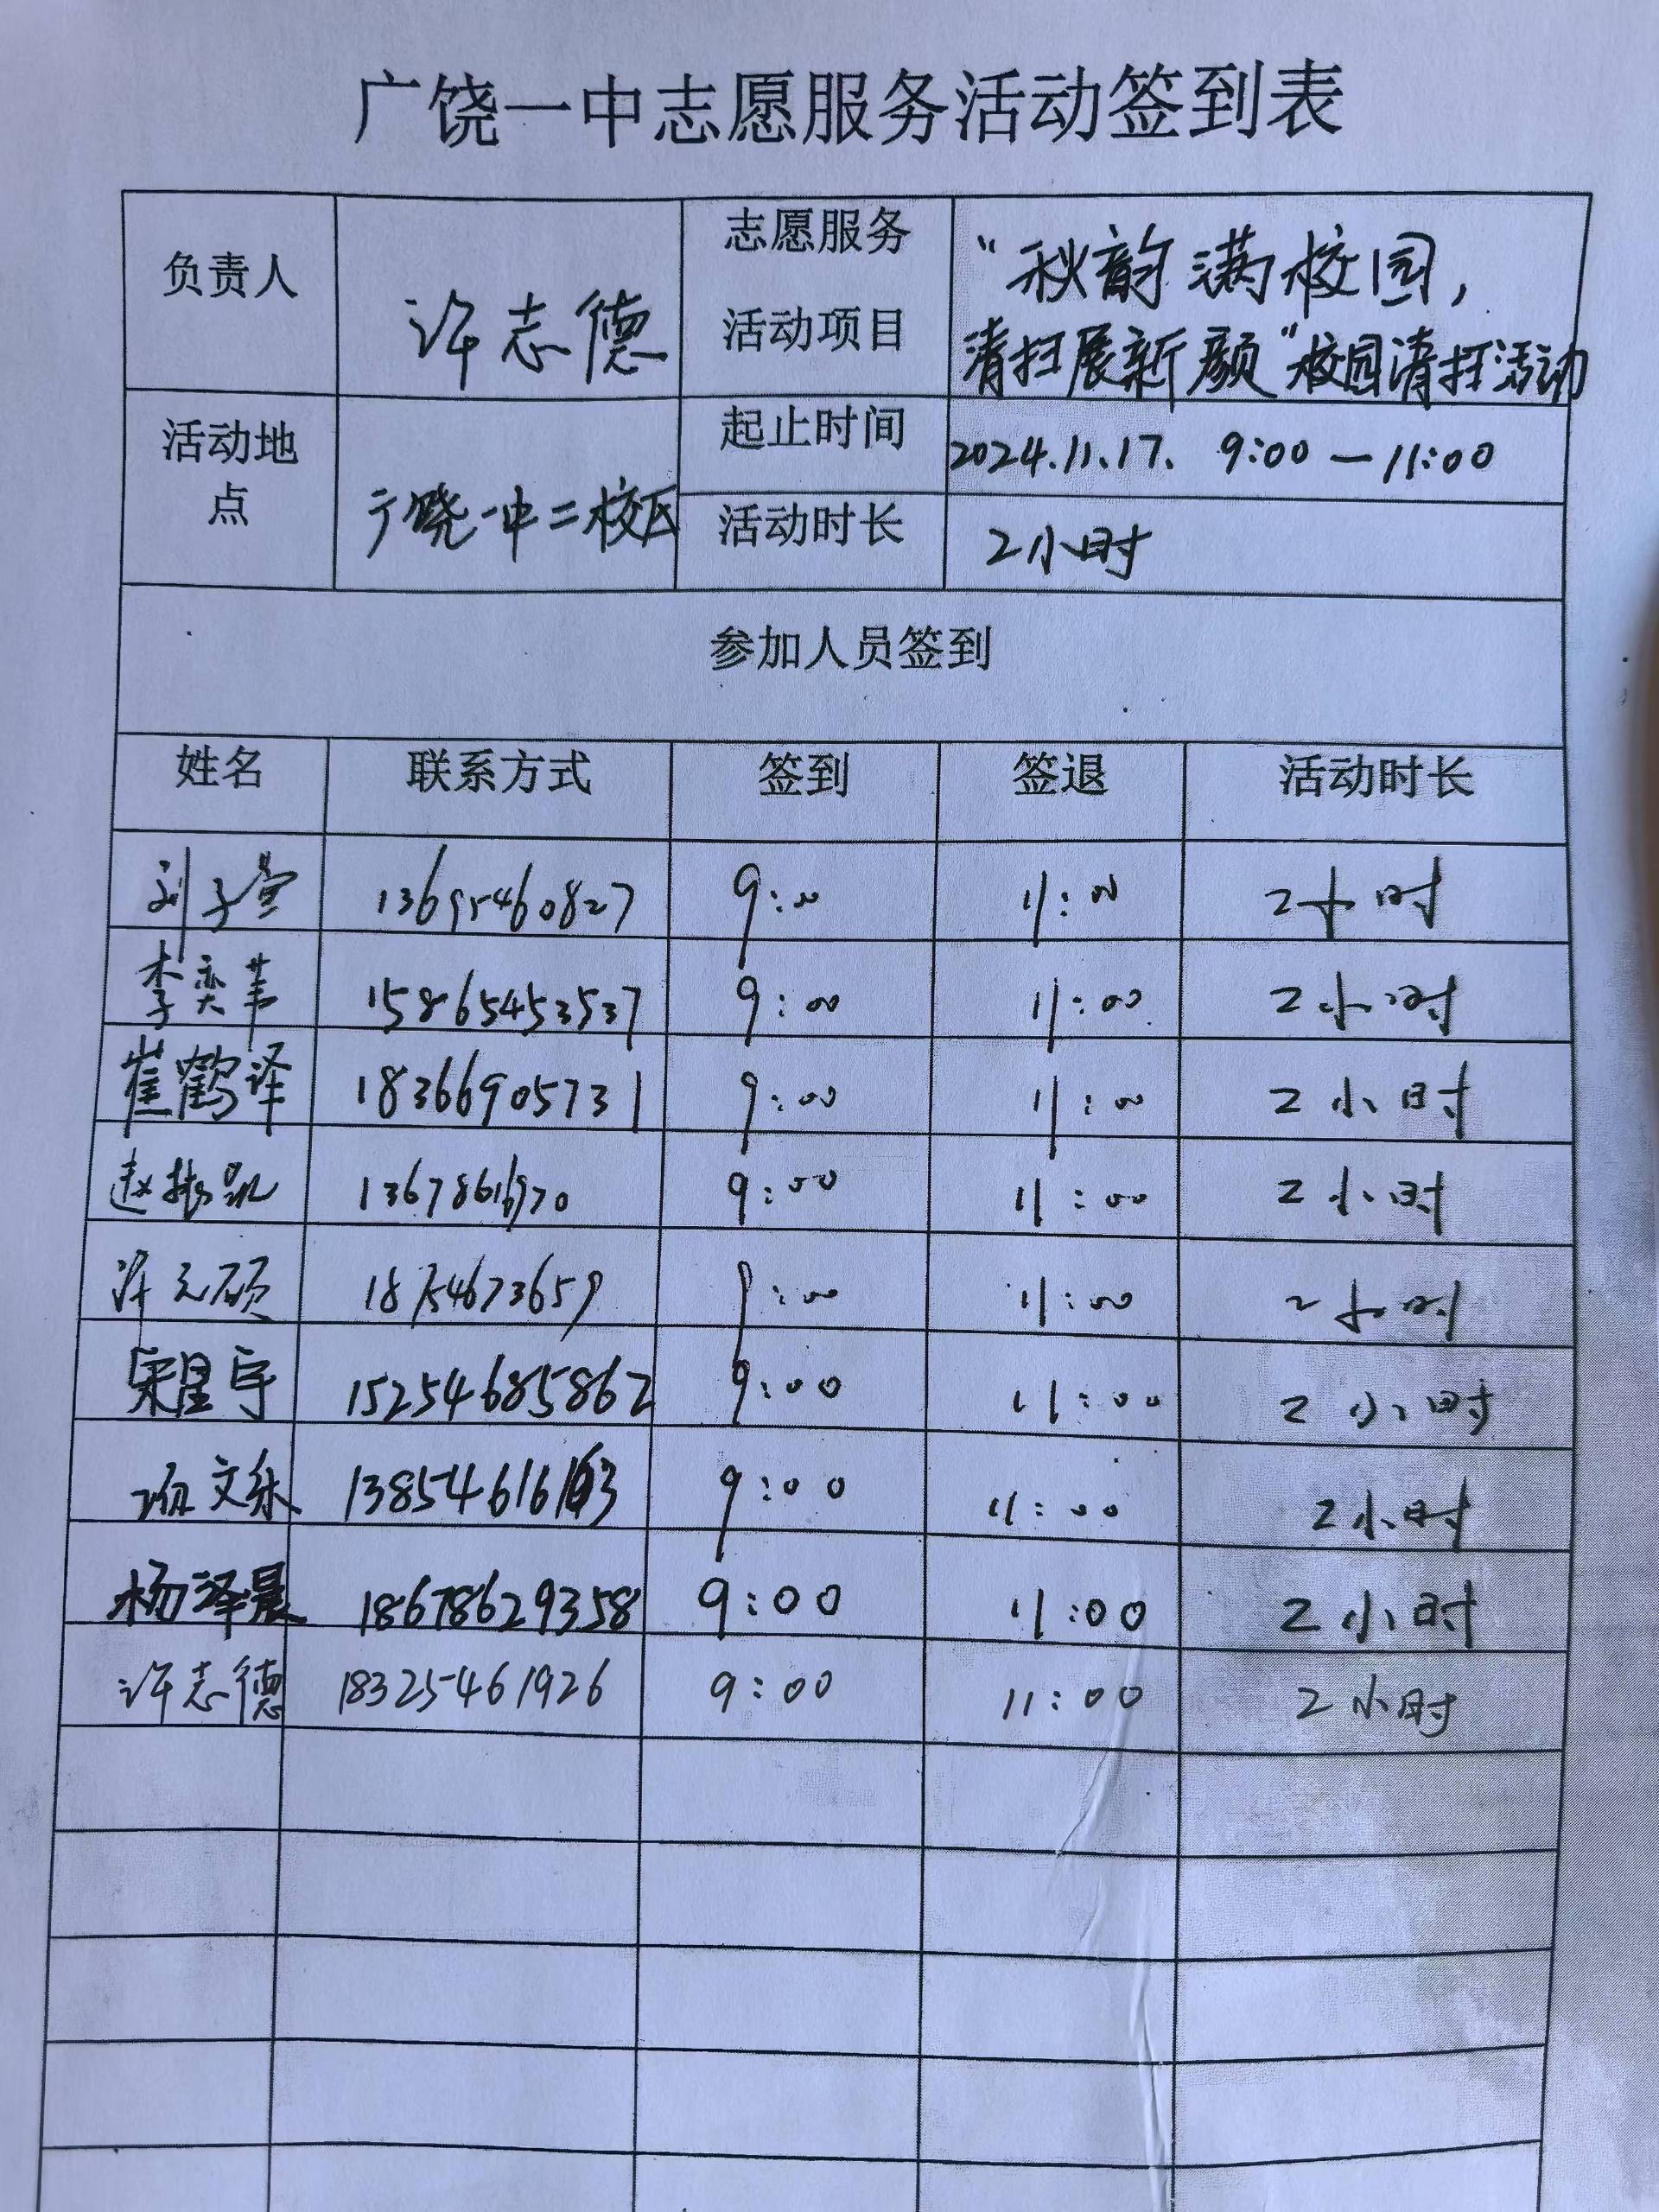 广饶一中志愿服务活动签到表
负责人 许志德 志愿服务活动项目 “秋韵满校园，
清扫展新颜”校园清扫活动
活动地点 广饶一中二校区 起止时间 2024.11.17. 9:00—11:00
活动时长 2小时
参加人员签到
姓名 联系方式 签到 签退 活动时长
刘子萱 13695460827 9:00 11:00 2小时
李奕苇 15865453537 9:00 11:00 2小时
崔鹤译 18366905731 9:00 11:00 2小时
赵振凯 9:00 11:00 2小时
许元硕 9:00 11:00 2小时
宋星宇 15254685862 9:00 11:00 2小时
文乐 9:00 11:00 2小时
杨泽晨 18678629358 9:00 11:00 2小时
许志德 18325461926 9:00 11:00 2小时